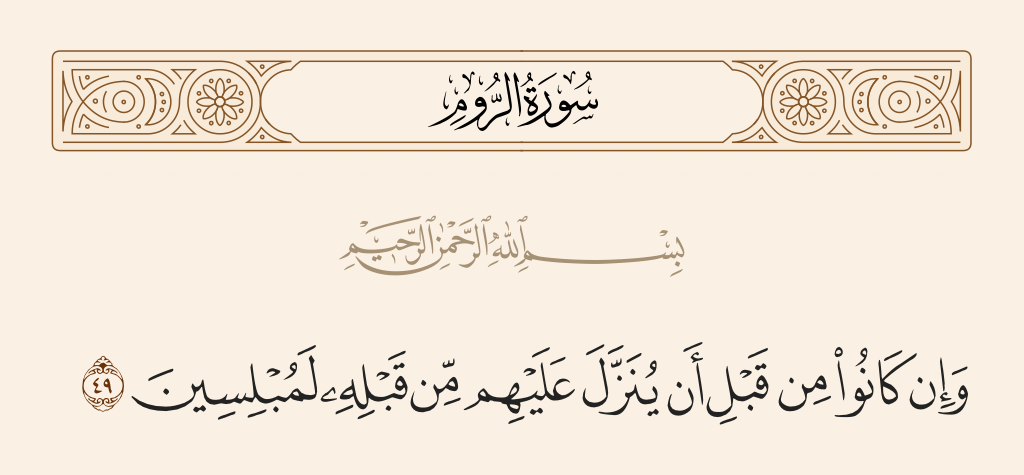 سُورَةُ الرُّومِ
بِسْمِ ٱللَّهِ ٱلرَّحْمَٰنِ ٱلرَّحِيمِ
وَإِن كَانُوا۟ مِن قَبْلِ أَن يُنَزَّلَ عَلَيْهِم مِّن قَبْلِهِۦ لَمُبْلِسِينَ ٤٩